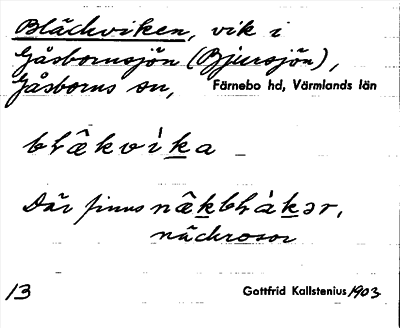 Bläckviken, vik i
Gåsbornsjön (Bjursjön),
Gåsborns sn, Färnebo hd, Värmlands län
bḷæ̂kvìka
Där finns næ̂kbḷàkər,
näckrosor
13 Gottfrid Kallstenius 1903